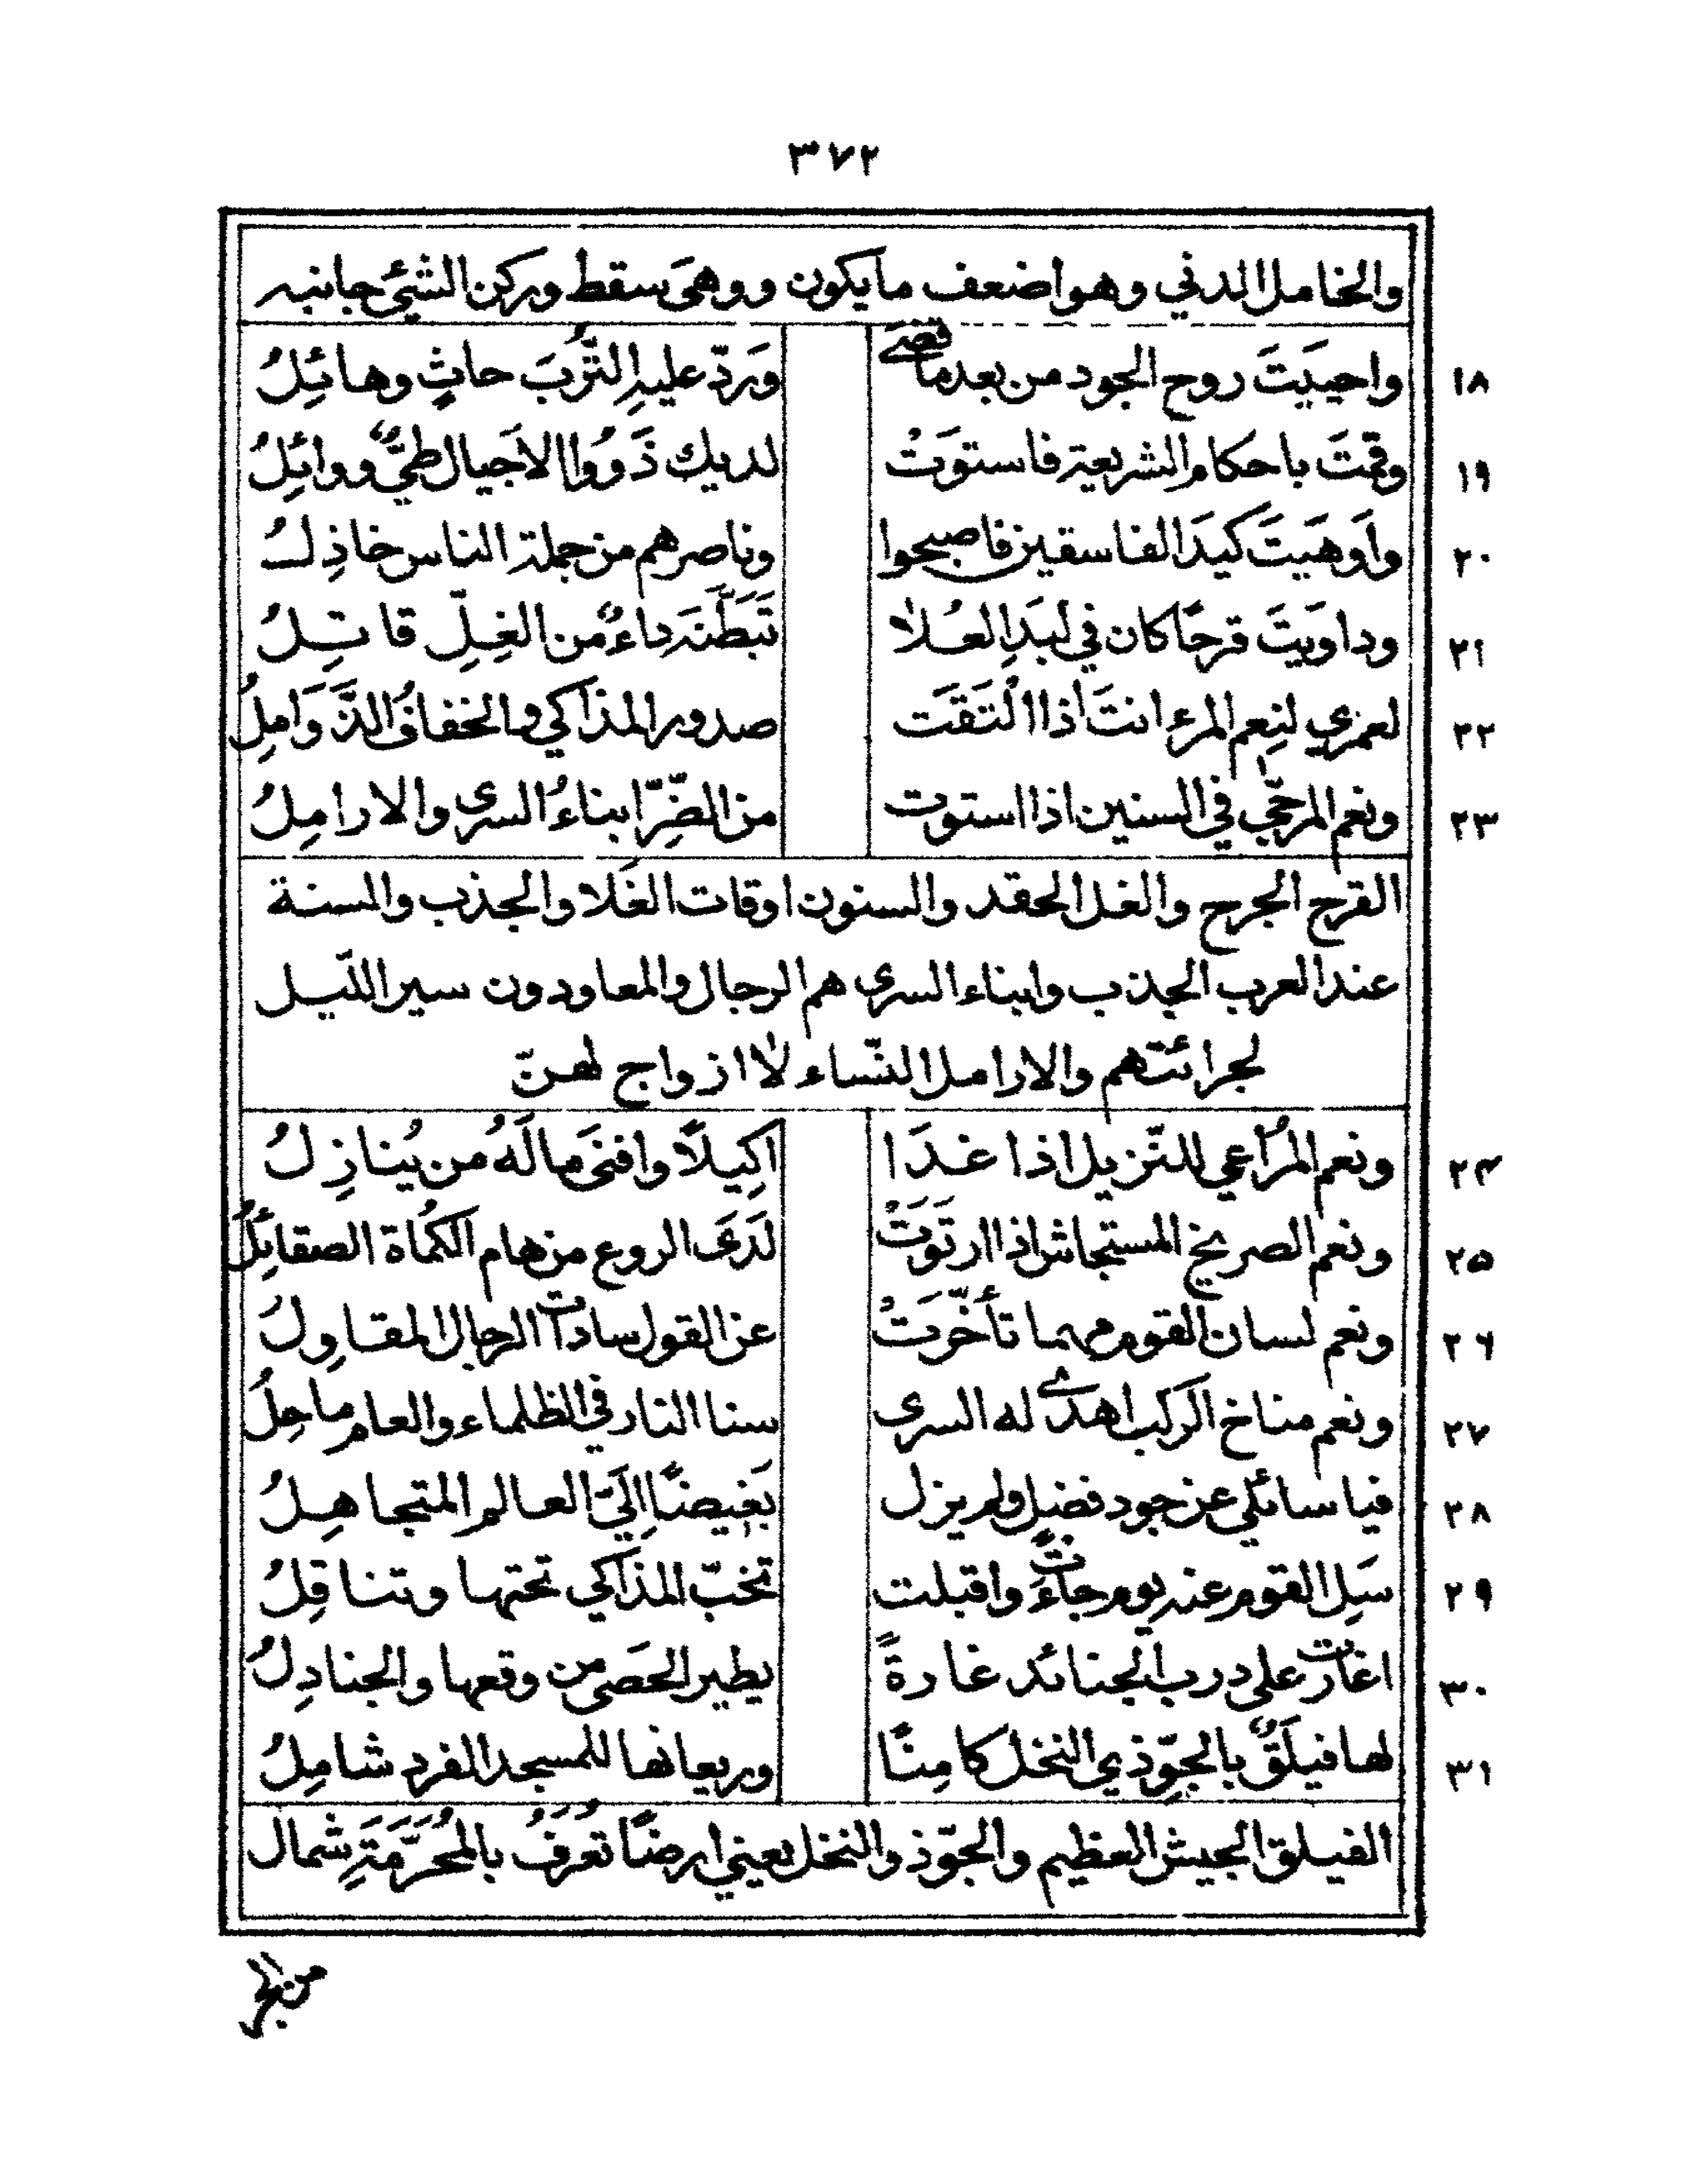 ٣٧٢
والخامل الدني وهو اضعف ما يكون ووهى سقط وركن الشيئ جانبه
١٨ واحييتَ روح الجود من بعدما قضى وَردّ عليهِ التُّربَ حاثٍ وهائِلُ
١٩ وقمتَ باحكام الشريعة فاستوَتْ لديك ذَوُوا الاَجيال طيٌّ ووائِلُ
٢٠ واَوهَيتَ كيدَ الفاسقين فاصبحوا وناصرهم من جملة الناس خاذِلُ
٢١ وداوَيتَ قرحًا كان في لبَدِ العُلا تَبَطَّنَه داءٌ من الغِلِّ قاتِلُ
٢٢ لعمري لنِعم المرء انتَ اذا التَقَت صدور المذاكي والخفافُ الذَّوَامِلُ
٢٣ ونعم المرجّي في السنين اذا استوت من الضِّرّ ابناءُ السرى والارامِلُ
القرح الجرح والغل الحقد والسنون اوقات الغَلا والجذب والسنة
عند العرب الجذب وابناء السرى هم الرجال والمعاودون سير اللّيل
لجرائتهم والارامل النّساء لا ازواج لهنّ
٢٤ ونعم المُراعي للنّزيل اذا غدَا اكِيلًا وافنَى مالَهُ من يُنازِلُ
٢٥ ونعم الصريخ المستجاش اذا ارتَوَتْ لدَى الروع من هام الكُماة الصقائِلُ
٢٦ ونعم لسان القوم مهما تأخّرَتْ عن القول سادات الرجال المقاوِلُ
٢٧ ونعم مناخ الركب اهدى له السرى سنا النار في الظلماء والعام ماحِلُ
٢٨ فيا سائلي عن جود فضل ولم يزل بَغيضًا اِليَّ العالم المتجاهِلُ
٢٩ سَلِ القوم عنه يوم جاءَتْ واقبلت تخبّ المذاكي تحتها وتناقِلُ
٣٠ اغارت على درب الجنائد غارةً يطير الحَصى من وقعها والجنادِلُ
٣١ لها فيلَقٌ بالجوّ ذي النخل كامِنًا وريعانها للمسجد الفرد شامِلُ
الفيلق الجيش العظيم والجوّ ذو النخل يعني ارضًا تُعرَفُ بالمُحَرَّمَةِ شمال